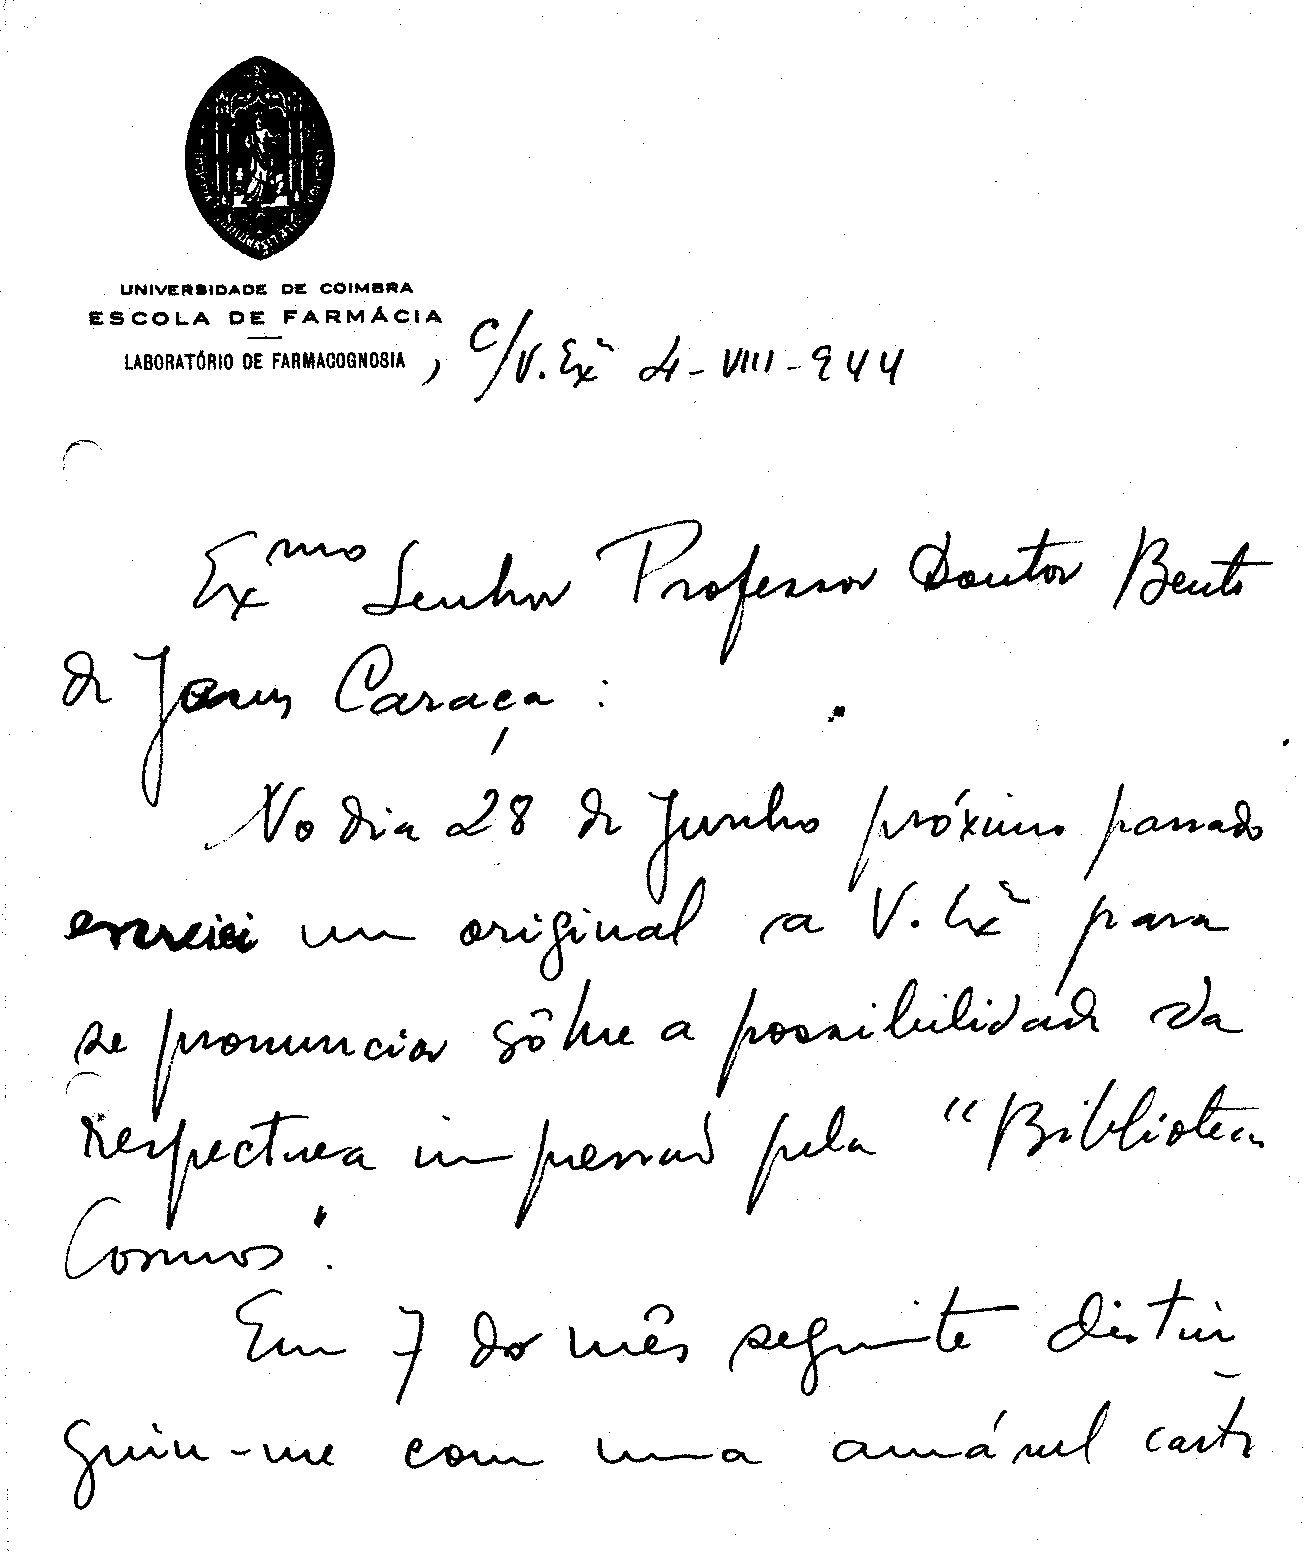 UNIVERSIDADE DE COIMBRA
ESCOLA DE FARMÁCIA
LABORATÓRIO DE FARMACOGNOSIA, C/V. Exª 4-VIII-944
Exmo Senhor Professor Doutor Bento
de Jesus Caraça:
No dia 28 de Junho próximo passado
enviei um original a V. Exª para
se pronunciar sôbre a possibilidade da
respectiva impressão pela "Biblioteca
Cosmos".
Em 7 do mês seguinte distin
guiu-me com uma amável carta